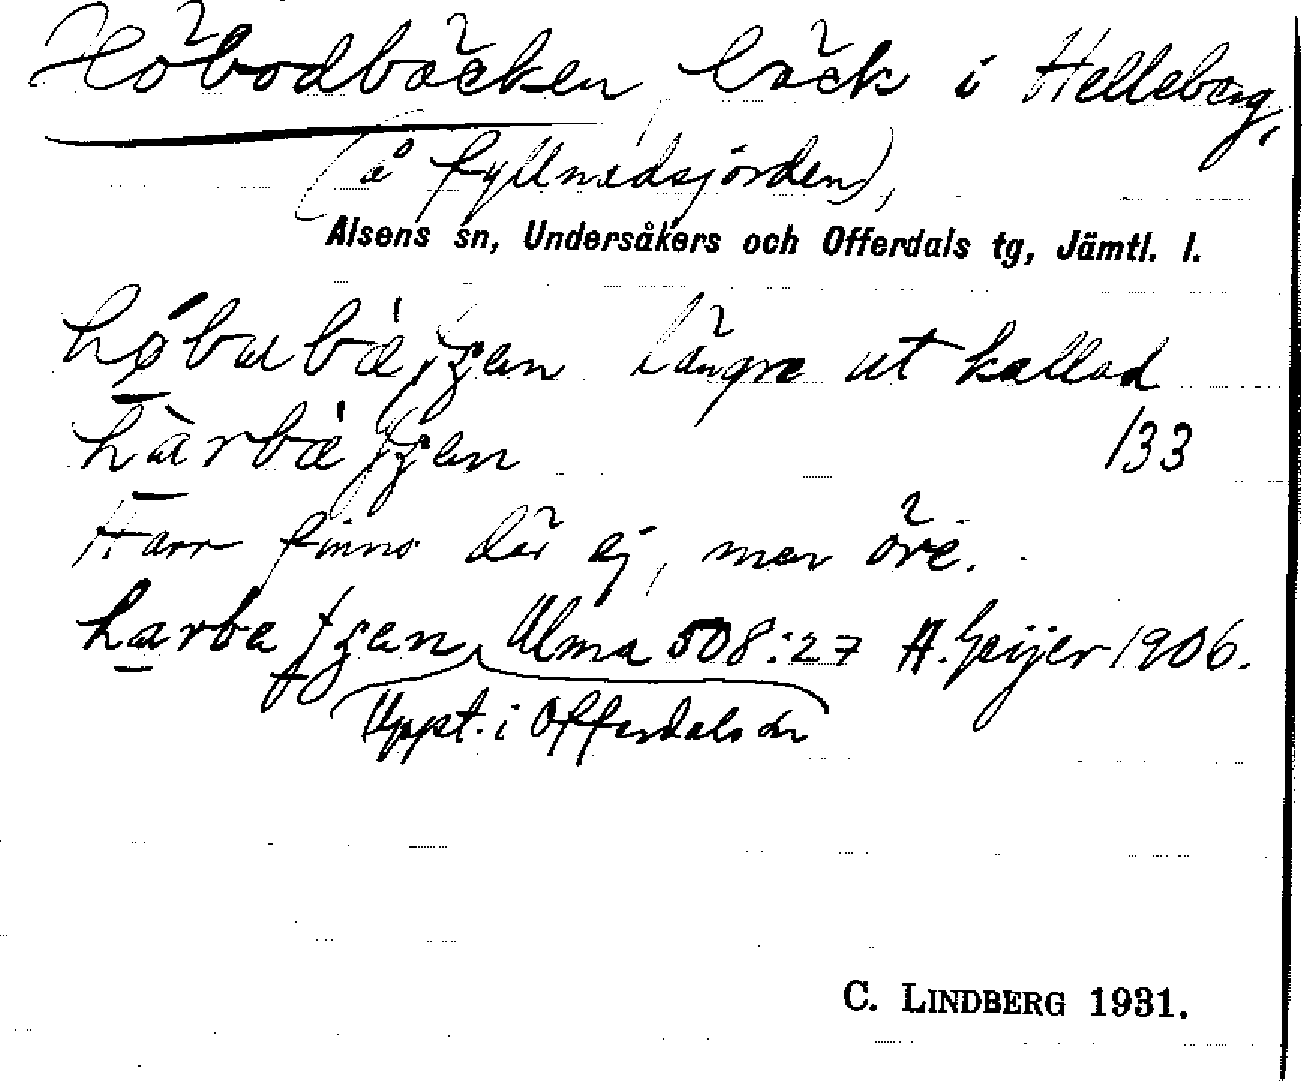 Höbodbäcken bäck i Helleberg,
(å fyllnadsjorden),
Alsens sn, Undersåkers och Offerdals tg, Jämtl. l.
längre ut kallad
133
Harr finns där ej, men öre.
Ulma 508:27 A. Geijer 1906.
Uppt. i Offerdals sn
C. LINDBERG 1931.